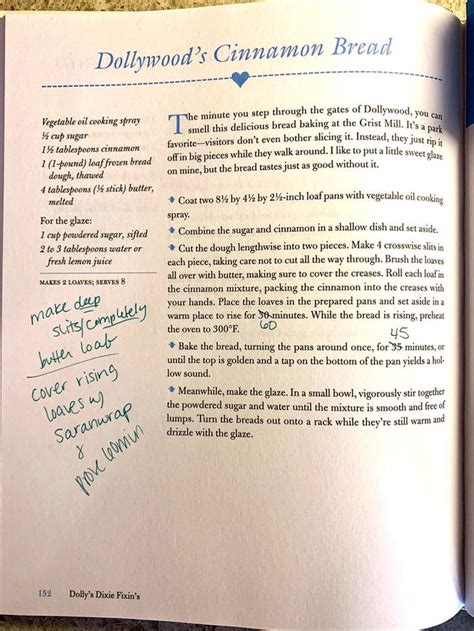 Dollywood's Cinnamon Bread
Vegetable oil cooking spray
½ cup sugar
1½ tablespoons cinnamon
1 (1-pound) loaf frozen bread
dough, thawed
4 tablespoons (½ stick) butter,
melted
For the glaze:
1 cup powdered sugar, sifted
2 to 3 tablespoons water or
fresh lemon juice
MAKES 2 LOAVES; SERVES 8
make deep
slits/completely
butter loaf
cover rising
loaves w/
saranwrap
&
prove
The minute you step through the gates of Dollywood, you can
smell this delicious bread baking at the Grist Mill. It's a park
favorite—visitors don't even bother slicing it. Instead, they just rip it
off in big pieces while they walk around. I like to put a little sweet glaze
on mine, but the bread tastes just as good without it.
Coat two 8½ by 4½ by 2½-inch loaf pans with vegetable oil cooking
spray.
Combine the sugar and cinnamon in a shallow dish and set aside.
Cut the dough lengthwise into two pieces. Make 4 crosswise slits in
each piece, taking care not to cut all the way through. Brush the loaves
all over with butter, making sure to cover the creases. Roll each loaf in
the cinnamon mixture, packing the cinnamon into the creases with
your hands. Place the loaves in the prepared pans and set aside in a
warm place to rise for 30 minutes. While the bread is rising, preheat
the oven to 300°F.
60
45
Bake the bread, turning the pans around once, for 35 minutes, or
until the top is golden and a tap on the bottom of the pan yields a hol-
low sound.
Meanwhile, make the glaze. In a small bowl, vigorously stir together
the powdered sugar and water until the mixture is smooth and free of
lumps. Turn the breads out onto a rack while they're still warm and
drizzle with the glaze.
152 Dolly's Dixie Fixin's